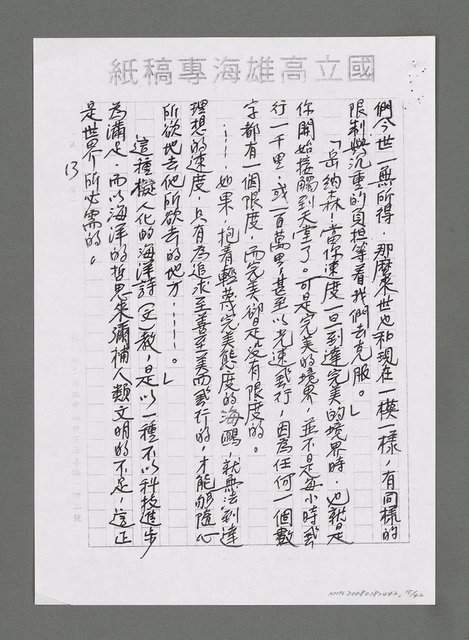 國立高雄海專稿紙
們今世一無所得，那麼來世也和現在一模一樣，有同樣的
限制與沉重的負擔等着我們去克服。」
「岳納森！當你速度一旦到達完美的境界時，也就是
你開始接觸到天堂了。可是完美的境界，並不是每小時飛
行一千里，或一百萬里，甚至以光速飛行，因為任何一個數
字都有一個限度，而完美卻是沒有限度的。
……如果，抱着輕蔑完美態度的海鷗，就無法到達
理想的速度，只有為追求至善至美而飛行的，才能夠隨心
所欲地去他所欲去的地方……。」
這種擬人化的海洋詩（文）教，是以一種不以科技進步
為滿足，而以海洋的哲思來彌補人類文明的不足，這正
是世界所必需的。
13
NMTL20080182442, 15/42